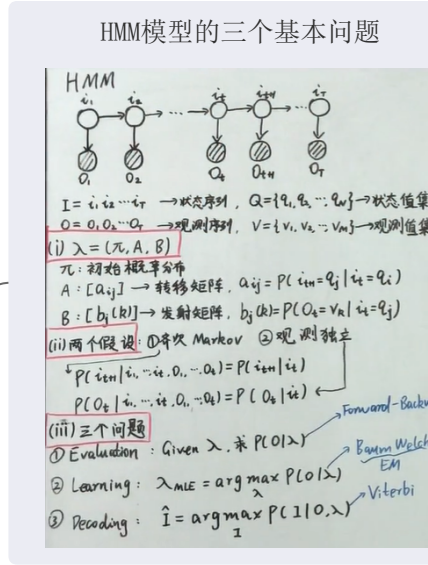 HMM模型的三个基本问题
HMM
i₁ i₂ ... iₜ iₜ₊₁ ... i_T
O₁ O₂ Oₜ Oₜ₊₁ O_T
I = i₁ i₂ ... i_T → 状态序列, Q = {q₁, q₂, ... q_N} → 状态值集
O = O₁ O₂ ... O_T → 观测序列, V = {v₁, v₂, ... v_M} → 观测值集
(i) λ = (π, A, B)
π : 初始概率分布
A : [aᵢⱼ] → 转移矩阵, aᵢⱼ = P(iₜ₊₁ = qⱼ | iₜ = qᵢ)
B : [bⱼ(k)] → 发射矩阵, bⱼ(k) = P(Oₜ = v_k | iₜ = qⱼ)
(ii) 两个假设 : ① 齐次 Markov ② 观测独立
P(iₜ₊₁ | i₁ ... iₜ, O₁ ... Oₜ) = P(iₜ₊₁ | iₜ)
P(Oₜ | i₁ ... iₜ, O₁ ... Oₜ) = P(Oₜ | iₜ)
(iii) 三个问题
① Evaluation : Given λ, 求 P(O|λ) → Forward-Backw
② Learning : λ_MLE = arg max_λ P(O|λ) → Baum Welch
EM
③ Decoding : Î = arg max_I P(I|O,λ) → Viterbi